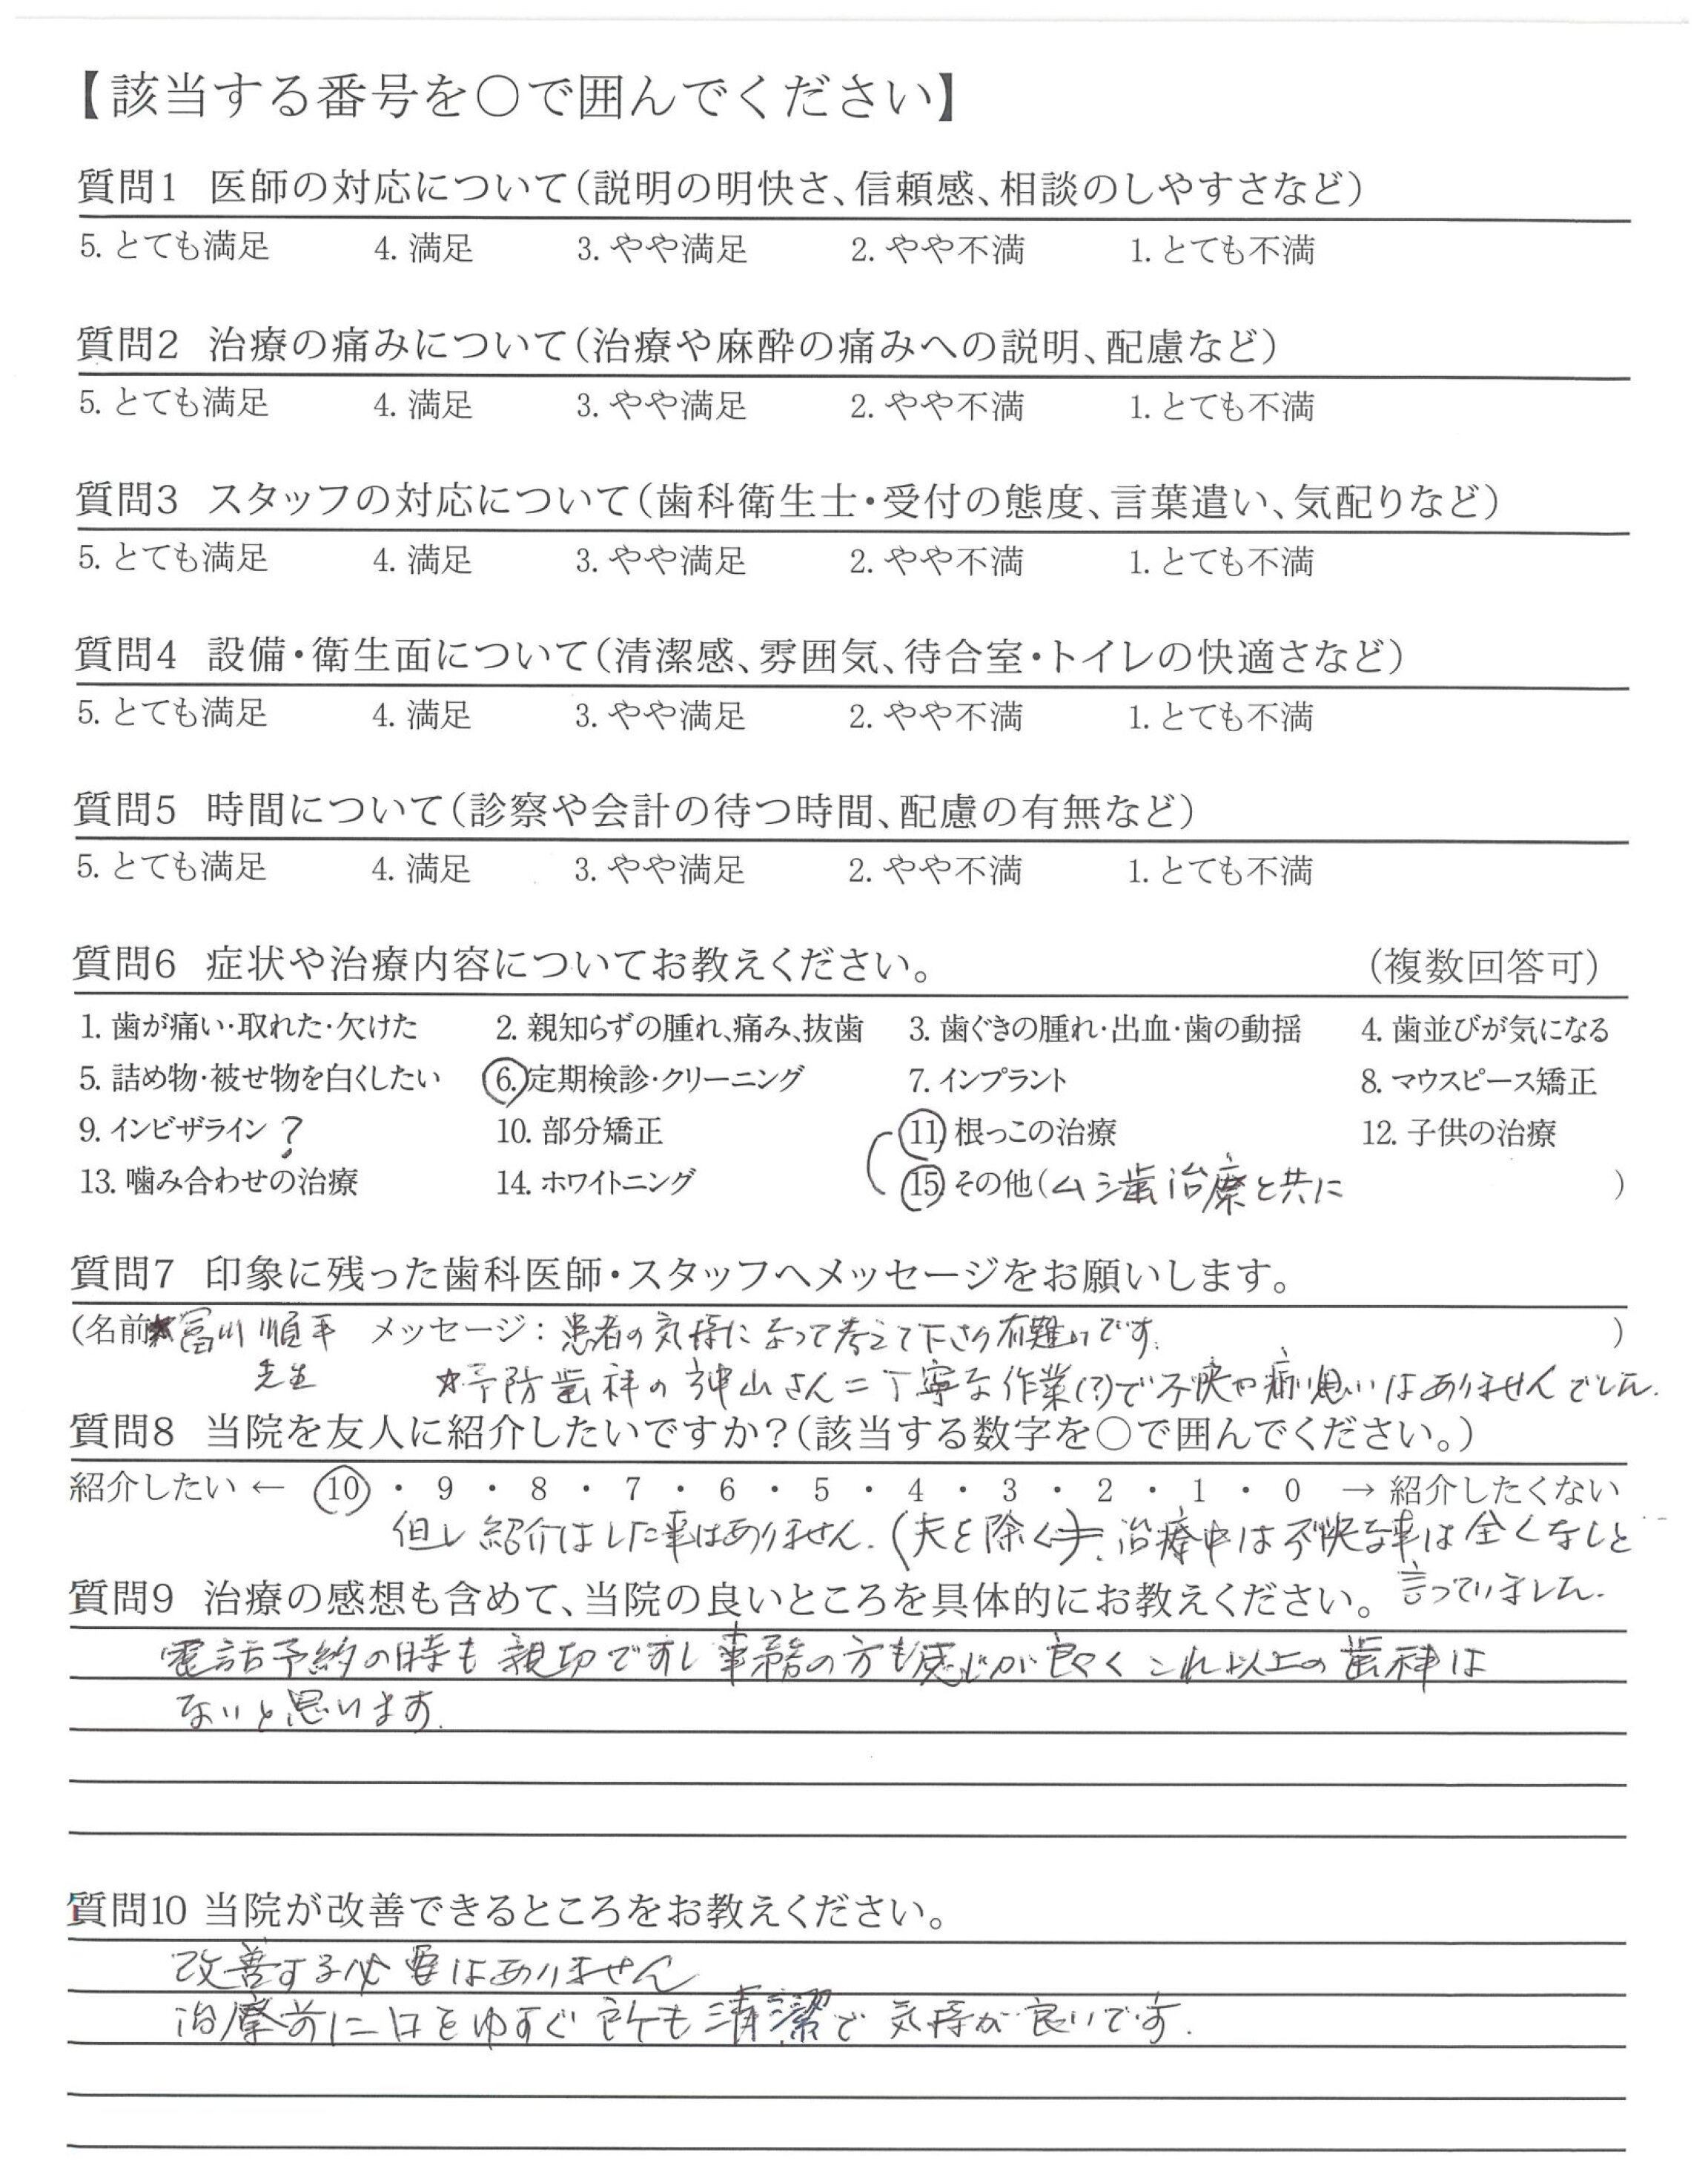 【該当する番号を○で囲んでください】
質問1 医師の対応について(説明の明快さ、信頼感、相談のしやすさなど)
5. とても満足 4. 満足 3. やや満足 2. やや不満 1. とても不満
質問2 治療の痛みについて(治療や麻酔の痛みへの説明、配慮など)
5. とても満足 4. 満足 3. やや満足 2. やや不満 1. とても不満
質問3 スタッフの対応について(歯科衛生士・受付の態度、言葉遣い、気配りなど)
5. とても満足 4. 満足 3. やや満足 2. やや不満 1. とても不満
質問4 設備・衛生面について(清潔感、雰囲気、待合室・トイレの快適さなど)
5. とても満足 4. 満足 3. やや満足 2. やや不満 1. とても不満
質問5 時間について(診察や会計の待つ時間、配慮の有無など)
5. とても満足 4. 満足 3. やや満足 2. やや不満 1. とても不満
質問6 症状や治療内容についてお教えください。 (複数回答可)
1. 歯が痛い・取れた・欠けた 2. 親知らずの腫れ、痛み、抜歯 3. 歯ぐきの腫れ・出血・歯の動揺 4. 歯並びが気になる
5. 詰め物・被せ物を白くしたい 6. 定期検診・クリーニング 7. インプラント 8. マウスピース矯正
9. インビザライン ? 10. 部分矯正 11. 根っこの治療 12. 子供の治療
13. 噛み合わせの治療 14. ホワイトニング 15. その他(ムシ歯治療と共に )
質問7 印象に残った歯科医師・スタッフへメッセージをお願いします。
(名前★冨川順平 メッセージ: 患者の気持になって考えて下さり有難いです。 )
先生 ☆予防歯科の神山さん=丁寧な作業(?)で不快や痛い思いはありませんでした.
質問8 当院を友人に紹介したいですか?(該当する数字を○で囲んでください。)
紹介したい ← 10 ・ 9 ・ 8 ・ 7 ・ 6 ・ 5 ・ 4 ・ 3 ・ 2 ・ 1 ・ 0 → 紹介したくない
但し紹介はした事はありません.(夫を除く) 治療中は不快な事は全くなしと
質問9 治療の感想も含めて、当院の良いところを具体的にお教えください。 言っていました.
電話予約の時も親切ですし事務の方も感じが良くこれ以上の歯科は
ないと思います.
質問10 当院が改善できるところをお教えください。
改善する必要はありません
治療前に口をゆすぐ所も清潔で気持が良いです.